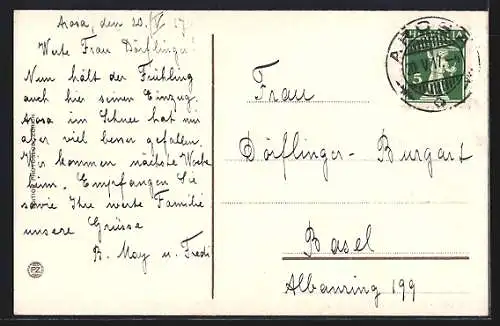 Arosa, den 20. V. 17.
Werte Frau Dörflinger!
Nun hält der Frühling
auch hier seinen Einzug.
Arosa im Schnee hat mir
aber viel besser gefallen.
Wir kommen nächste Woche
heim. Empfangen Sie
sowie Ihre werte Familie
unsere Grüsse
B. May u. Fredi
AROSA
5
Frau
Dörflinger-Burgart
Basel
Albanring 199
PZ